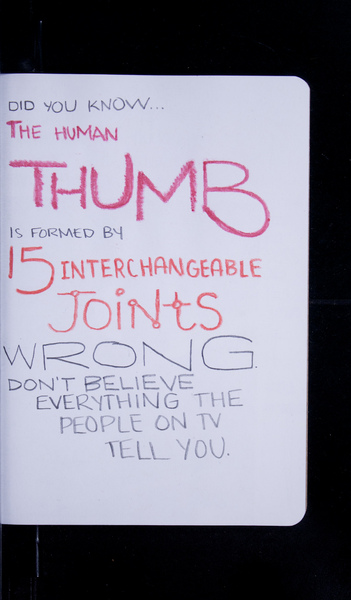 DID YOU KNOW...
THE HUMAN
THUMB
IS FORMED BY
15 INTERCHANGEABLE
JOiNtS
WRONG.
DON'T BELIEVE
EVERYTHING THE
PEOPLE ON TV
TELL YOU.